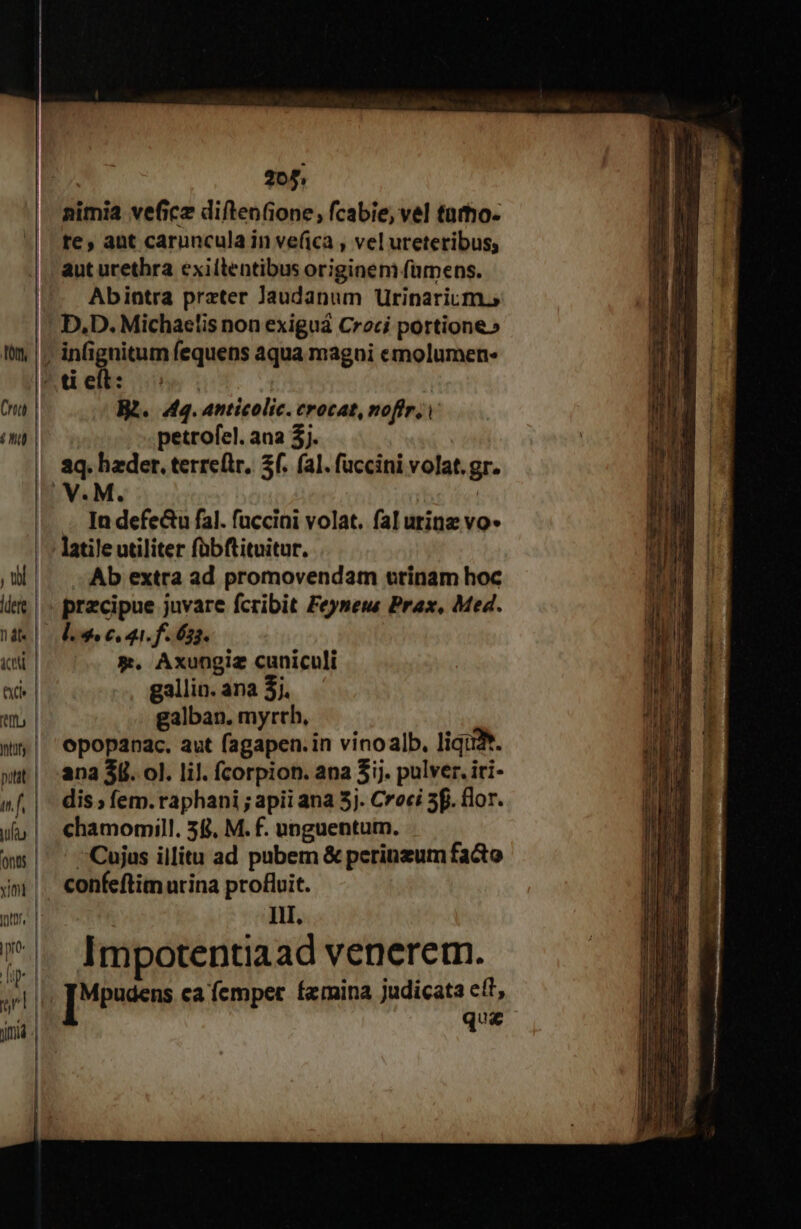 205.
nimia vesicæ distensione, scabie, vel tumo-
re, aut caruncula in vesica, vel ureteribus,
aut urethra existentibus originem sumens.
Ab intra præter laudanum Urinarium,
D.D. Michaelis non exiguâ Croci portione,
insignitum sequens aqua magni emolumen-
ti est:
℞. Aq. anticolic. crocat. nostr.
petrosel. ana ℥j.
aq. hæder. terrestr. ℥ſ. sal. succini volat. gr.
V. M.
In defectu sal. succini volat. sal urinæ vo-
latile utiliter substituitur.
Ab extra ad promovendam urinam hoc
præcipue juvare scribit Feyneus Prax. Med.
l. 4. c. 41. f. 633.
℞. Axungiæ cuniculi
gallin. ana ℥j.
galban. myrrh.
opopanac. aut sagapen. in vino alb. liquat.
ana ℥ß. ol. lil. scorpion. ana ℥ij. pulver. iri-
dis, sem. raphani; apii ana ʒj. Croci ʒß. flor.
chamomill. ʒß, M. f. unguentum.
Cujus illitu ad pubem & perinæum facto
confestim urina profluit.
III.
Impotentia ad venerem.
IMpudens ea semper fæmina judicata est,
quæ